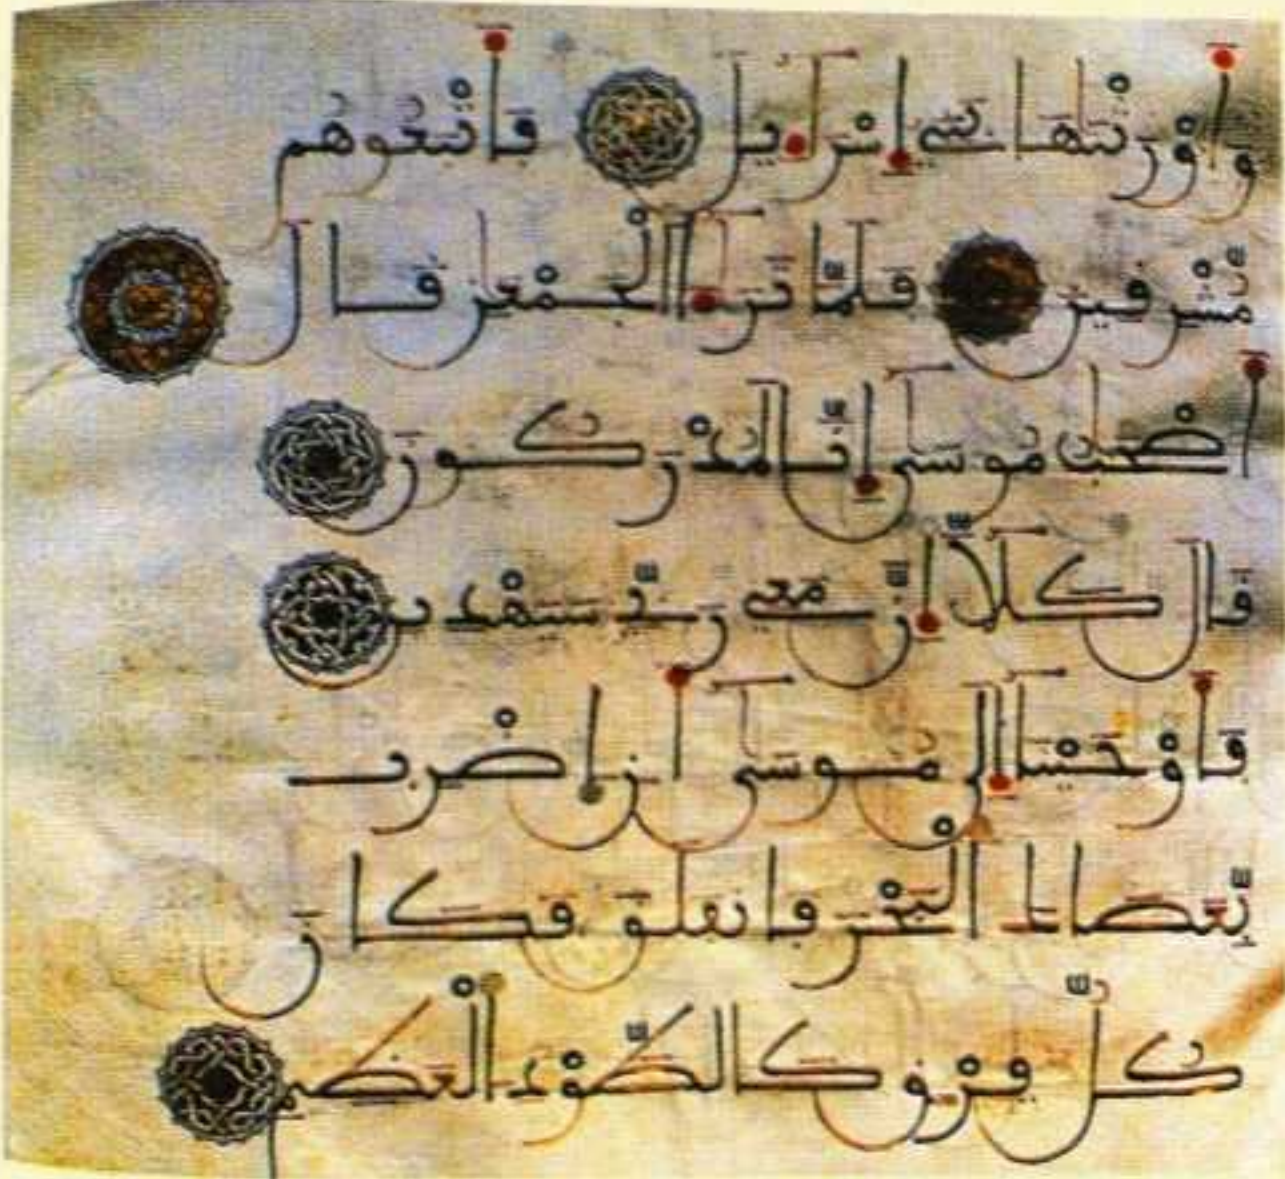 وَأَوْرَثْنَٰهَا بَنِىٓ إِسْرَٰٓءِيلَ فَأَتْبَعُوهُم
مُّشْرِفِينَ فَلَمَّا تَرَٰٓءَا الْجَمْعَٰنِ قَالَ
أَصْحَٰبُ مُوسَىٰٓ إِنَّا لَمُدْرَكُونَ
قَالَ كَلَّآ إِنَّ مَعِى رَبِّى سَيَهْدِينِ
فَأَوْحَيْنَآ إِلَىٰ مُوسَىٰٓ أَنِ اِضْرِب
بِّعَصَاكَ اَلْبَحْرَ فَانفَلَقَ فَكَانَ
كُلُّ فِرْقٍ كَالطَّوْدِ اِلْعَظِيمِ